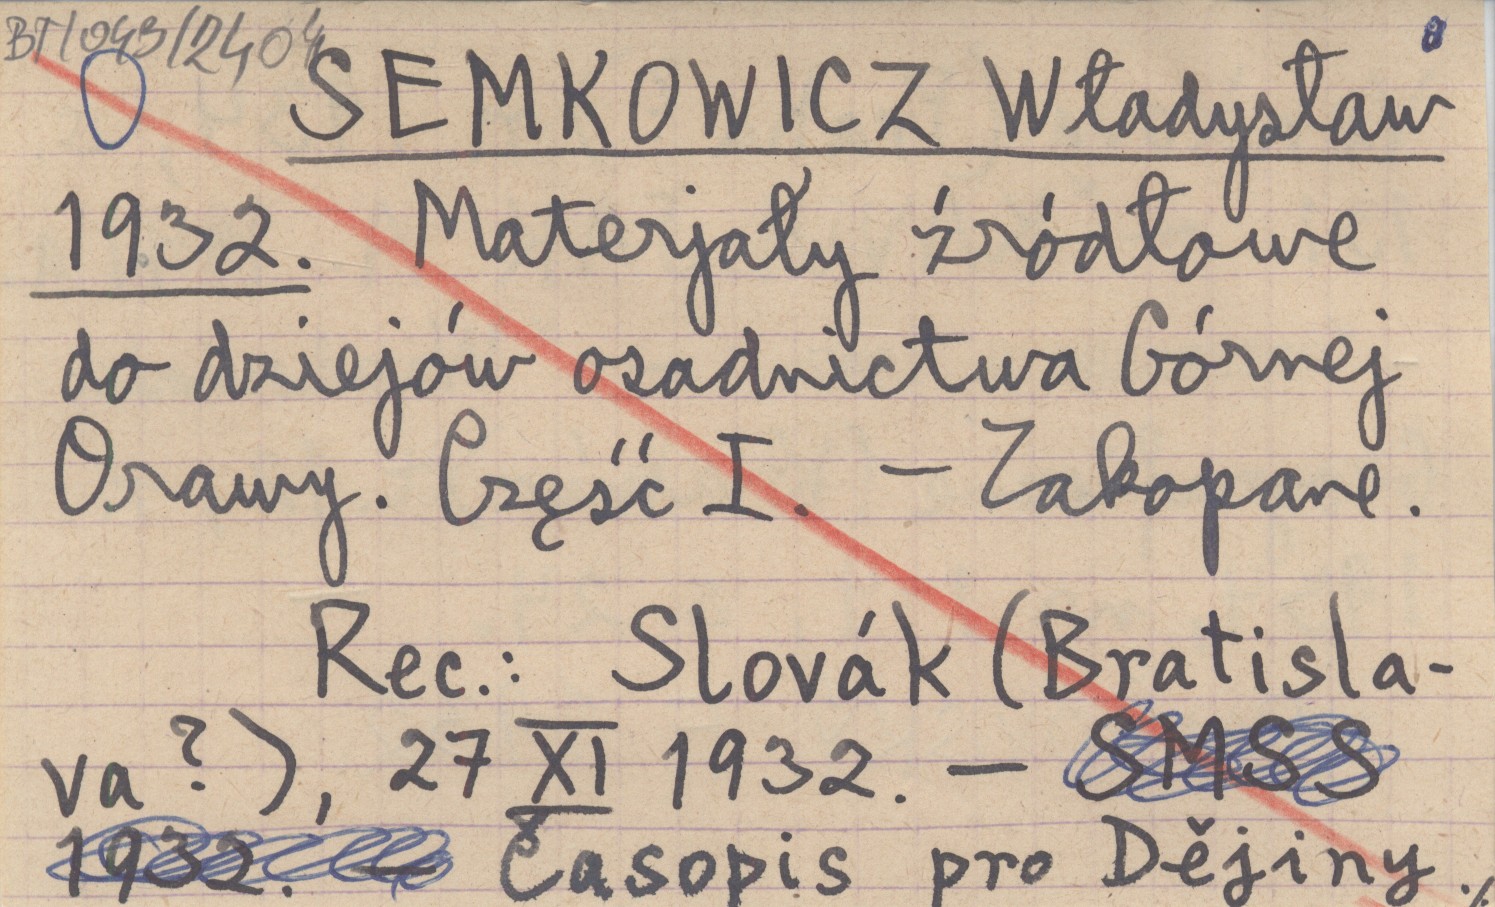 BT/043/2404
SEMKOWICZ Władysław
1932. Materjały źródłowe
do dziejów osadnictwa Górnej
Orawy. Część I. - Zakopane.
Rec.: Slovák (Bratisla-
va?), 27 XI 1932. - SMSS
1932. - Časopis pro Dějiny ./.